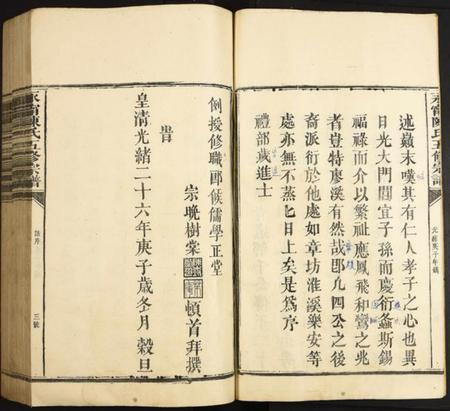 永甯陳氏五修宗譜
光緒庚子年鐫
述巔末嘆其有仁人孝子之心也異
日光大門閭宜子孫而慶衍螽斯錫
福祿而介以繁祉應鳳飛和鸞之兆
者豈特廖溪有然哉即九四公之後
裔派衍於他處如章坊淮溪樂安等
處亦無不蒸蒸日上矣是爲序
禮部歲進士
例授修職郎候儒學正堂
宗晩樹棠 頓首拜撰
旹
皇清光緒二十六年庚子歲冬月 穀旦
永甯陳氏五修宗譜
序
三號